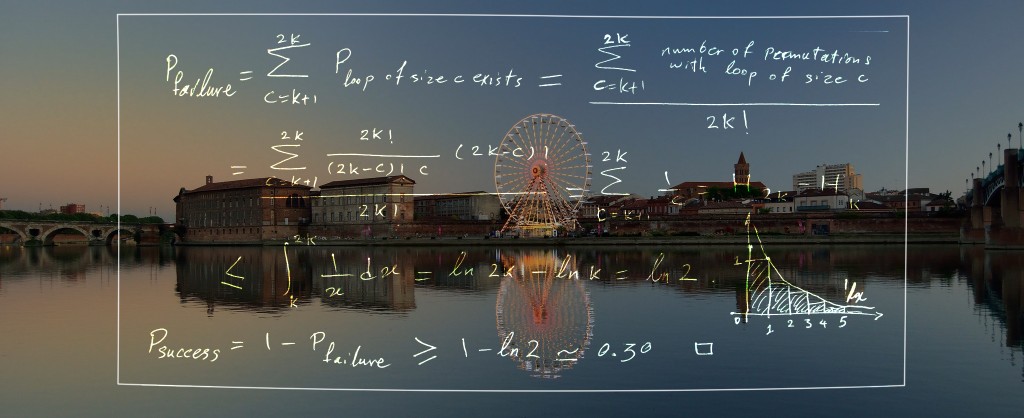 P_failure = Σ_{c=k+1}^{2k} P_loop of size c exists = Σ_{c=k+1}^{2k} number of permutations with loop of size c / 2k!
= Σ_{c=k+1}^{2k} 2k! / ((2k-c)! c) (2k-c)! / 2k! = Σ_{c=k+1}^{2k} 1/c = H_{2k} - H_k
≤ ∫_k^{2k} 1/x dx = ln 2k - ln k = ln 2.
1
1/x
0 1 2 3 4 5
P_success = 1 - P_failure ≥ 1 - ln 2 ≃ 0.30 □